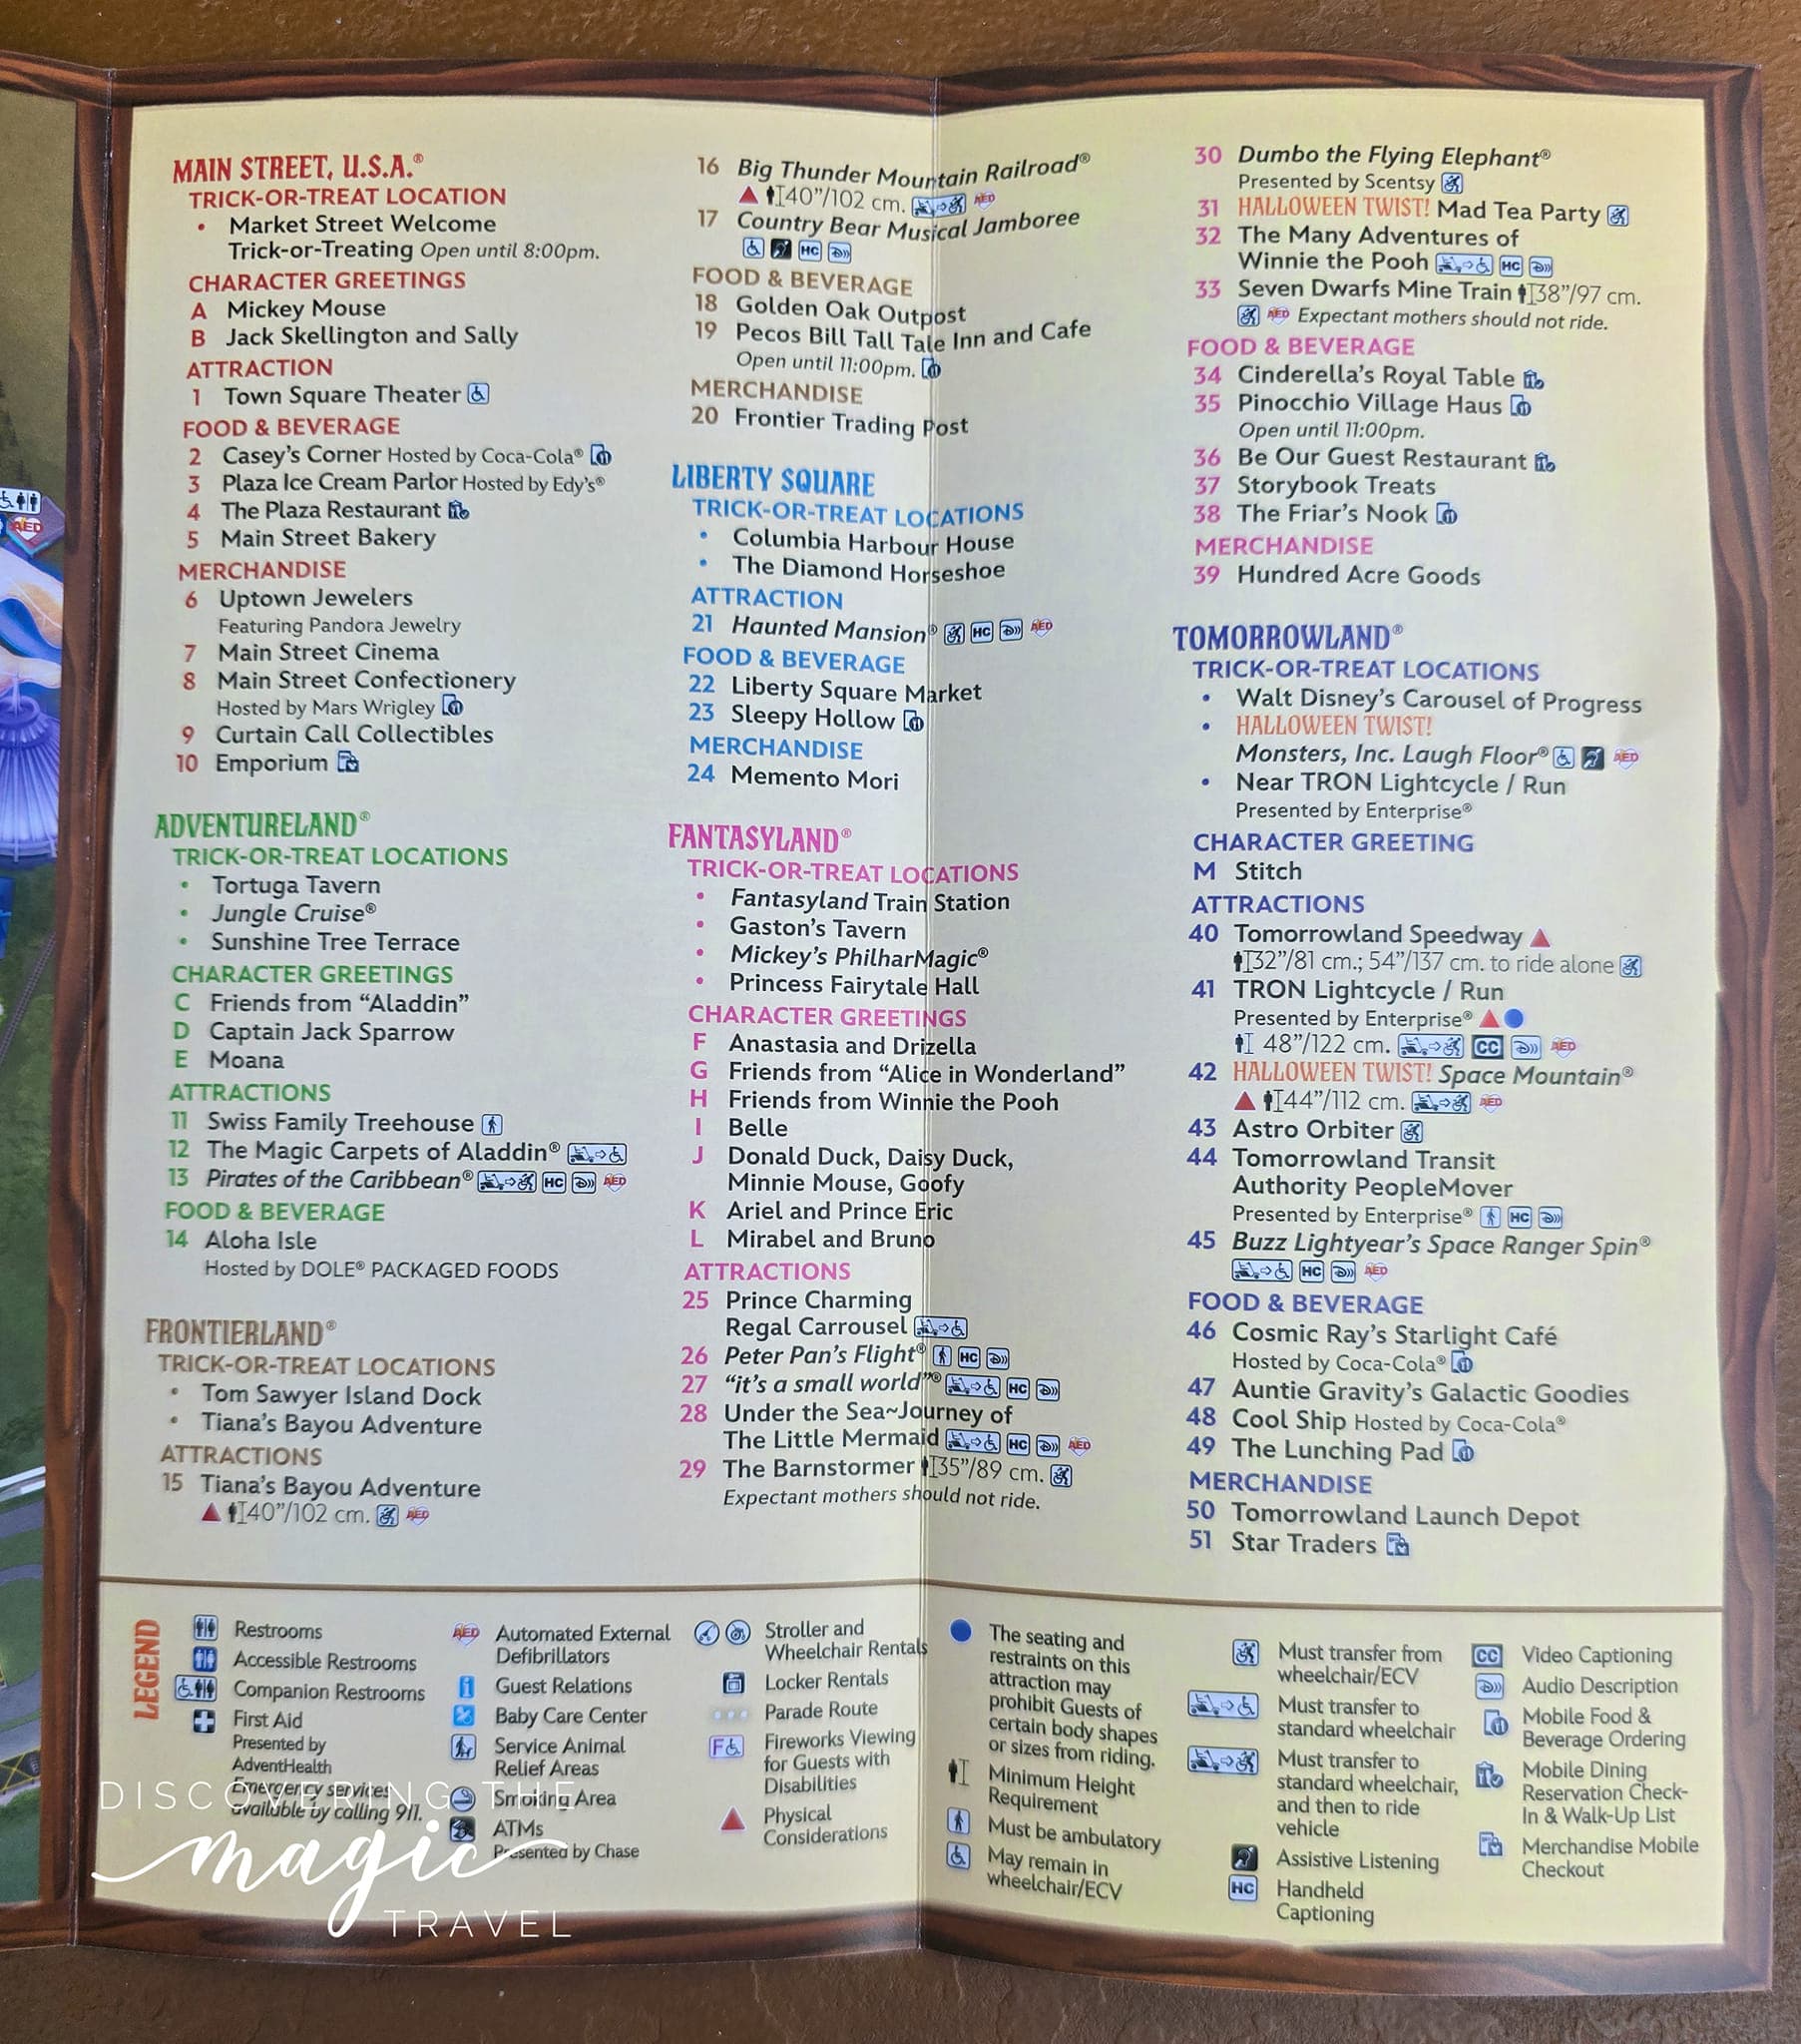 MAIN STREET, U.S.A.®
TRICK-OR-TREAT LOCATION
• Market Street Welcome
Trick-or-Treating Open until 8:00pm.
CHARACTER GREETINGS
A Mickey Mouse
B Jack Skellington and Sally
ATTRACTION
1 Town Square Theater
FOOD & BEVERAGE
2 Casey's Corner Hosted by Coca-Cola®
3 Plaza Ice Cream Parlor Hosted by Edy's®
4 The Plaza Restaurant
5 Main Street Bakery
MERCHANDISE
6 Uptown Jewelers
Featuring Pandora Jewelry
7 Main Street Cinema
8 Main Street Confectionery
Hosted by Mars Wrigley
9 Curtain Call Collectibles
10 Emporium
ADVENTURELAND®
TRICK-OR-TREAT LOCATIONS
• Tortuga Tavern
• Jungle Cruise®
• Sunshine Tree Terrace
CHARACTER GREETINGS
C Friends from “Aladdin”
D Captain Jack Sparrow
E Moana
ATTRACTIONS
11 Swiss Family Treehouse
12 The Magic Carpets of Aladdin®
13 Pirates of the Caribbean® HC D AED
FOOD & BEVERAGE
14 Aloha Isle
Hosted by DOLE® PACKAGED FOODS
FRONTIERLAND®
TRICK-OR-TREAT LOCATIONS
• Tom Sawyer Island Dock
• Tiana's Bayou Adventure
ATTRACTIONS
15 Tiana's Bayou Adventure
40”/102 cm. AED
16 Big Thunder Mountain Railroad®
40”/102 cm. AED
17 Country Bear Musical Jamboree
HC D
FOOD & BEVERAGE
18 Golden Oak Outpost
19 Pecos Bill Tall Tale Inn and Cafe
Open until 11:00pm.
MERCHANDISE
20 Frontier Trading Post
LIBERTY SQUARE
TRICK-OR-TREAT LOCATIONS
• Columbia Harbour House
• The Diamond Horseshoe
ATTRACTION
21 Haunted Mansion® HC D AED
FOOD & BEVERAGE
22 Liberty Square Market
23 Sleepy Hollow
MERCHANDISE
24 Memento Mori
FANTASYLAND®
TRICK-OR-TREAT LOCATIONS
• Fantasyland Train Station
• Gaston's Tavern
• Mickey's PhilharMagic®
• Princess Fairytale Hall
CHARACTER GREETINGS
F Anastasia and Drizella
G Friends from “Alice in Wonderland”
H Friends from Winnie the Pooh
I Belle
J Donald Duck, Daisy Duck,
Minnie Mouse, Goofy
K Ariel and Prince Eric
L Mirabel and Bruno
ATTRACTIONS
25 Prince Charming
Regal Carrousel
26 Peter Pan's Flight® HC D
27 “it's a small world”® HC D
28 Under the Sea~Journey of
The Little Mermaid HC D AED
29 The Barnstormer 35”/89 cm.
Expectant mothers should not ride.
30 Dumbo the Flying Elephant®
Presented by Scentsy
31 HALLOWEEN TWIST! Mad Tea Party
32 The Many Adventures of
Winnie the Pooh HC D
33 Seven Dwarfs Mine Train 38”/97 cm.
AED Expectant mothers should not ride.
FOOD & BEVERAGE
34 Cinderella's Royal Table
35 Pinocchio Village Haus
Open until 11:00pm.
36 Be Our Guest Restaurant
37 Storybook Treats
38 The Friar's Nook
MERCHANDISE
39 Hundred Acre Goods
TOMORROWLAND®
TRICK-OR-TREAT LOCATIONS
• Walt Disney's Carousel of Progress
• HALLOWEEN TWIST!
Monsters, Inc. Laugh Floor® AED
• Near TRON Lightcycle / Run
Presented by Enterprise®
CHARACTER GREETING
M Stitch
ATTRACTIONS
40 Tomorrowland Speedway
32”/81 cm.; 54”/137 cm. to ride alone
41 TRON Lightcycle / Run
Presented by Enterprise®
48”/122 cm. CC D AED
42 HALLOWEEN TWIST! Space Mountain®
44”/112 cm. AED
43 Astro Orbiter
44 Tomorrowland Transit
Authority PeopleMover
Presented by Enterprise® HC D
45 Buzz Lightyear's Space Ranger Spin®
HC D AED
FOOD & BEVERAGE
46 Cosmic Ray's Starlight Café
Hosted by Coca-Cola®
47 Auntie Gravity's Galactic Goodies
48 Cool Ship Hosted by Coca-Cola®
49 The Lunching Pad
MERCHANDISE
50 Tomorrowland Launch Depot
51 Star Traders
LEGEND
Restrooms
Accessible Restrooms
Companion Restrooms
First Aid
Presented by
AdventHealth
Emergency services
available by calling 911.
AED Automated External
Defibrillators
Guest Relations
Baby Care Center
Service Animal
Relief Areas
Smoking Area
ATMs
Presented by Chase
Stroller and
Wheelchair Rentals
Locker Rentals
Parade Route
F Fireworks Viewing
for Guests with
Disabilities
Physical
Considerations
The seating and
restraints on this
attraction may
prohibit Guests of
certain body shapes
or sizes from riding.
Minimum Height
Requirement
Must be ambulatory
May remain in
wheelchair/ECV
Must transfer from
wheelchair/ECV
Must transfer to
standard wheelchair
Must transfer to
standard wheelchair,
and then to ride
vehicle
Assistive Listening
HC Handheld
Captioning
CC Video Captioning
D Audio Description
Mobile Food &
Beverage Ordering
Mobile Dining
Reservation Check-
In & Walk-Up List
Merchandise Mobile
Checkout
AED
DISCOVERING THE
magic
TRAVEL